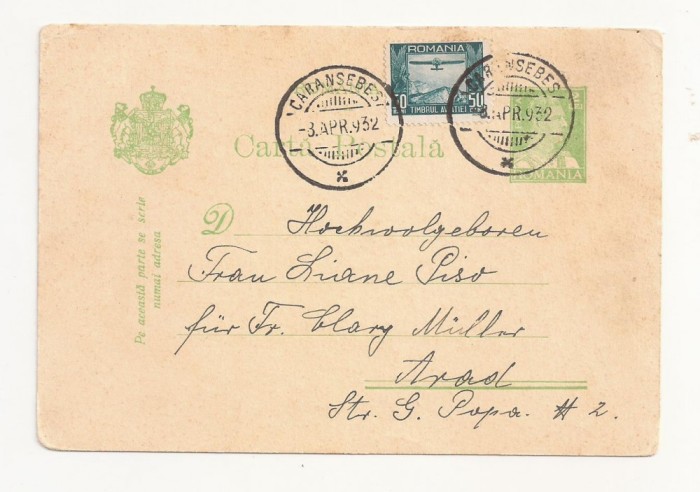 ROMANIA
50 50
TIMBRUL AVIAȚIEI
CARANSEBEȘ
-3.APR.932
CARANSEBEȘ
-3.APR.932
Cartă Poștală
ROMANIA
Pe această parte se scrie
numai adresa
D Hochwolgeboren
Frau Liane Piso
für Fr. Clary Müller
Arad
Str. G. Popa. # 2.